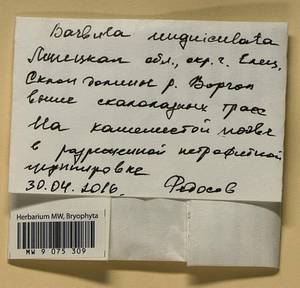 Barbula unguiculata
Липецкая обл., окр. г. Елец,
Склон долины р. Воргол
выше скалолазных трасс
На каменистой почве
в разреженной петрофитной
группировке
30.04.2016. Федосов
Herbarium MW, Bryophyta
MW 9 075 309